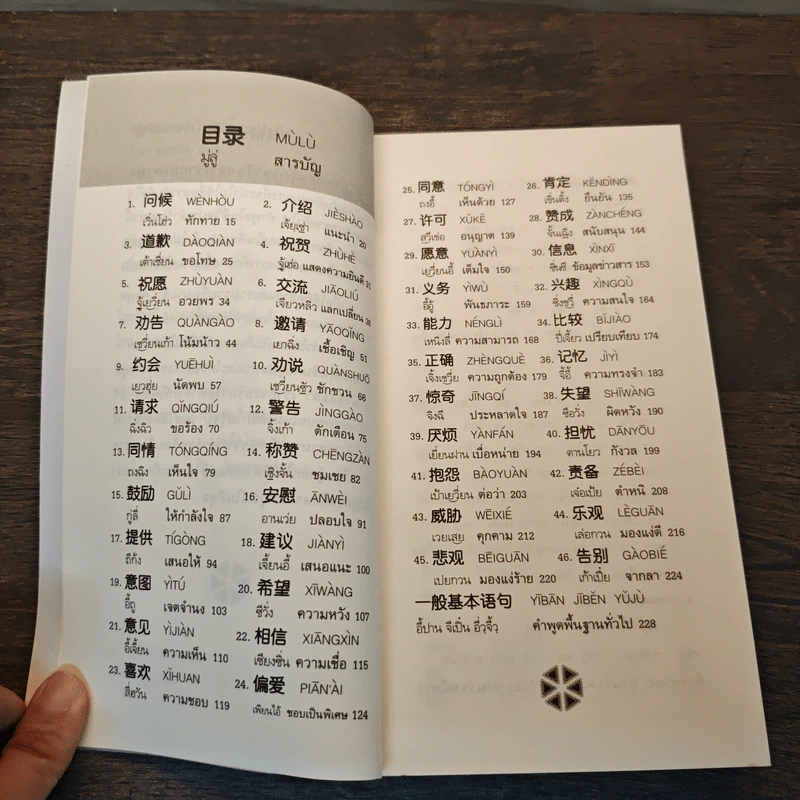 目录 MÙLÙ
มู่ลู่ สารบัญ
1. 问候 WÈNHÒU
เวิ่นโฮ่ว ทักทาย 15
2. 介绍 JIÈSHÀO
เจี้ยเซ่า แนะนำ 20
3. 道歉 DÀOQIÀN
เต้าเชี่ยน ขอโทษ 25
4. 祝贺 ZHÙHÈ
จู้เฮ่อ แสดงความยินดี 31
5. 祝愿 ZHÙYUÀN
จู้เยวี่ยน อวยพร 34
6. 交流 JIĀOLIÚ
เจียวหลิว แลกเปลี่ยน
7. 劝告 QUÀNGÀO
เชวี่ยนเก้า โน้มน้าว 44
8. 邀请 YĀOQǏNG
เยาฉิ่ง เชื้อเชิญ 51
9. 约会 YUĒHUÌ
เยวฮุ่ย นัดพบ 57
10. 劝说 QUÀNSHUŌ
เชวี่ยนซัว ชักชวน 66
11. 请求 QǏNGQIÚ
ฉิ่งฉิว ขอร้อง 70
12. 警告 JǏNGGÀO
จิ้งเก้า ตักเตือน 75
13. 同情 TÓNGQÍNG
ถงฉิง เห็นใจ 79
14. 称赞 CHĒNGZÀN
เชิงจั้น ชมเชย 82
15. 鼓励 GǓLÌ
กู่ลี่ ให้กำลังใจ 87
16. 安慰 ĀNWÈI
อานเว่ย ปลอบใจ 91
17. 提供 TÍGŌNG
ถีกัง เสนอให้ 94
18. 建议 JIÀNYÌ
เจี้ยนอี้ เสนอแนะ 100
19. 意图 YÌTÚ
อี้ถู เจตจำนง 103
20. 希望 XĪWÀNG
ซีวั่ง ความหวัง 107
21. 意见 YÌJIÀN
อี้เจี้ยน ความเห็น 110
22. 相信 XIĀNGXÌN
เซียงซิ่น ความเชื่อ 115
23. 喜欢 XǏHUAN
สี่ฮวัน ความชอบ 119
24. 偏爱 PIĀN'ÀI
เพียนไอ้ ชอบเป็นพิเศษ 124
25. 同意 TÓNGYÌ
ถงอี้ เห็นด้วย 127
26. 肯定 KĚNDÌNG
เขิ่นติ้ง ยืนยัน 135
27. 许可 XǓKĚ
สวี่เข่อ อนุญาต 139
28. 赞成 ZÀNCHÉNG
จั้นเฉิง สนับสนุน 144
29. 愿意 YUÀNYÌ
เยวี่ยนอี้ เต็มใจ 150
30. 信息 XÌNXĪ
ซิ่นซี ข้อมูลข่าวสาร 153
31. 义务 YÌWÙ
อี้อู้ พันธภาระ 159
32. 兴趣 XÌNGQÙ
ซิ่งชวี่ ความสนใจ 164
33. 能力 NÉNGLÌ
เหนิงลี่ ความสามารถ 168
34. 比较 BǏJIÀO
ปี่เจี้ยว เปรียบเทียบ 174
35. 正确 ZHÈNGQUÈ
เจิ้งเชวี่ย ความถูกต้อง 179
36. 记忆 JÌYÌ
จี้อี้ ความทรงจำ 183
37. 惊奇 JĪNGQÍ
จิงฉี ประหลาดใจ 187
38. 失望 SHĪWÀNG
ซือวั่ง ผิดหวัง 190
39. 厌烦 YÀNFÁN
เยี่ยนฝาน เบื่อหน่าย 194
40. 担忧 DĀNYŌU
ตานโยว กังวล 199
41. 抱怨 BÀOYUÀN
เป้าเยวี่ยน ต่อว่า 203
42. 责备 ZÉBÈI
เจ๋อเป้ย ตำหนิ 208
43. 威胁 WĒIXIÉ
เวยเสีย คุกคาม 212
44. 乐观 LÈGUĀN
เล่อกวน มองแง่ดี 216
45. 悲观 BĒIGUĀN
เปยกวน มองแง่ร้าย 220
46. 告别 GÀOBIÉ
เก้าเปี๋ย จากลา 224
一般基本语句 YĪBĀN JĪBĚN YǓJÙ
อี้ปาน จีเปิ่น อี่วจวี้ว คำพูดพื้นฐานทั่วไป 228